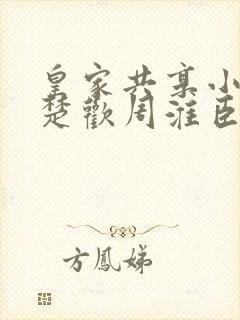 皇家共享小
楚歡周淮臣
方鳳娣